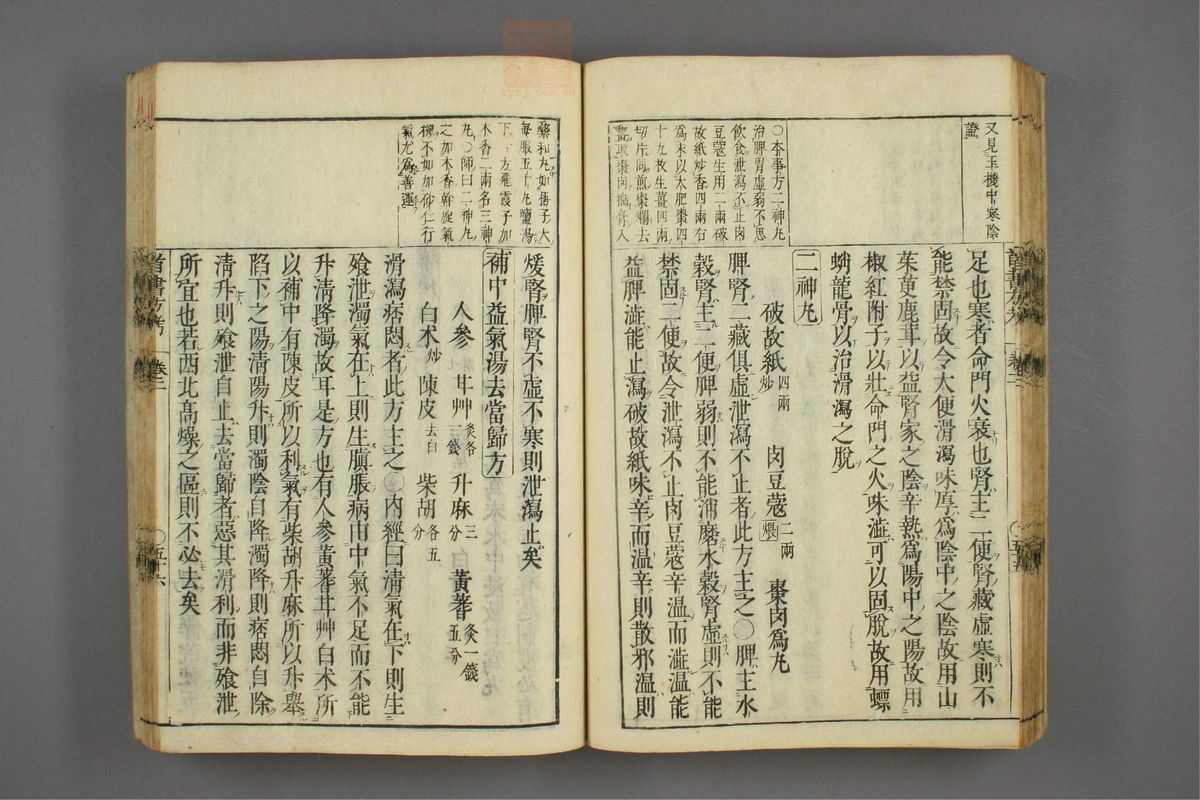 又見玉機中寒陰
證
足也寒者命門火衰也腎主二便腎藏虛寒則不
能禁固故令大便滑瀉味厚爲陰中之陰故用山
茱萸鹿茸以益腎家之陰辛熱爲陽中之陽故用
椒紅附子以壯命門之火味澁可以固脫故用螵
蛸龍骨以治滑瀉之脫
〇本事方二神丸
治脾胃虛弱不思
飲食泄瀉不止肉
豆蔻生用二兩破
故紙炒香四兩右
爲末以太肥棗四
十九枚生薑四兩
切片同煎棗爛去
薑取棗肉搗膏入
二神丸
破故紙四兩炒 肉豆蔻二兩煨 棗肉爲丸
脾腎二藏俱虛泄瀉不止者此方主之〇脾主水
穀腎主二便脾弱則不能消磨水穀腎虛則不能
禁固二便故令泄瀉不止肉豆蔻辛溫而澁溫能
益脾澁能止瀉破故紙味辛而溫辛則散邪溫則
藥和丸如梧子大
每服五十丸鹽湯
下一方飛霞子加
木香二兩名三神
丸〇師曰二神丸
之加木香幹旋氣
機不如加砂仁行
氣尤爲善運
煖腎脾腎不虛不寒則泄瀉止矣
補中益氣湯去當歸方
人參 甘艸炙各一錢 升麻三分 黃蓍炙一錢五分
白朮炒 陳皮去白 柴胡各五分
滑瀉痞悶者此方主之〇內經曰清氣在下則生
飱泄濁氣在上則生䐜脹病由中氣不足而不能
升清降濁故耳是方也有人參黃蓍甘艸白朮所
以補中有陳皮所以利氣有柴胡升麻所以升舉
陷下之陽清陽升則濁陰自降濁降則痞悶自除
清升則飱泄自止去當歸者惡其滑利而非飱泄
所宜也若西北高燥之區則不必去矣
首書方考 卷二 〇五十六